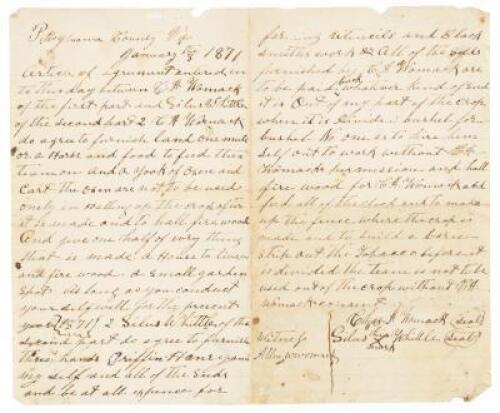 Pittsylvania County Va
January 3 1871
Article of agreement entered in
to this day between C H Womack
of the first part and Silus Whittle
of the second part I C H Womack
do agree to furnish land one mule
or a Horse and food to feed this
team on and a yook of oxen and
cart the oxen are not to be used
only in Halling up the crop after
it is made and to hall fire wood
and give one half of evry thing
that is made a House to live in
and fire wood a small garden
spot as long as you conduct
your self well for the present
year (1871) I Silus Whittle of the
second part do agree to furnish
three hands Griffin Hanr
my self and all of the
and be at all expence for
farming utencils and Black
smiths work & All of the
furnished by C H Womack are
to be paid back whatever kind of seed
it is Out of my part of the crop
when it is divide bushel for
bushel No one is to hire him
self out to work without C H
Womacks permission and hall
fire wood for C H Womack and
feed all of the stock and to make
up the fence where the crop is
made and to build a barn
strip out the Tobacco before it
is divided the team is not to be
used out of the crop without C H
Womack consent
Chas H Womack (seal)
Silus X Whittle (seal)
mark
Witness
Allen Womack